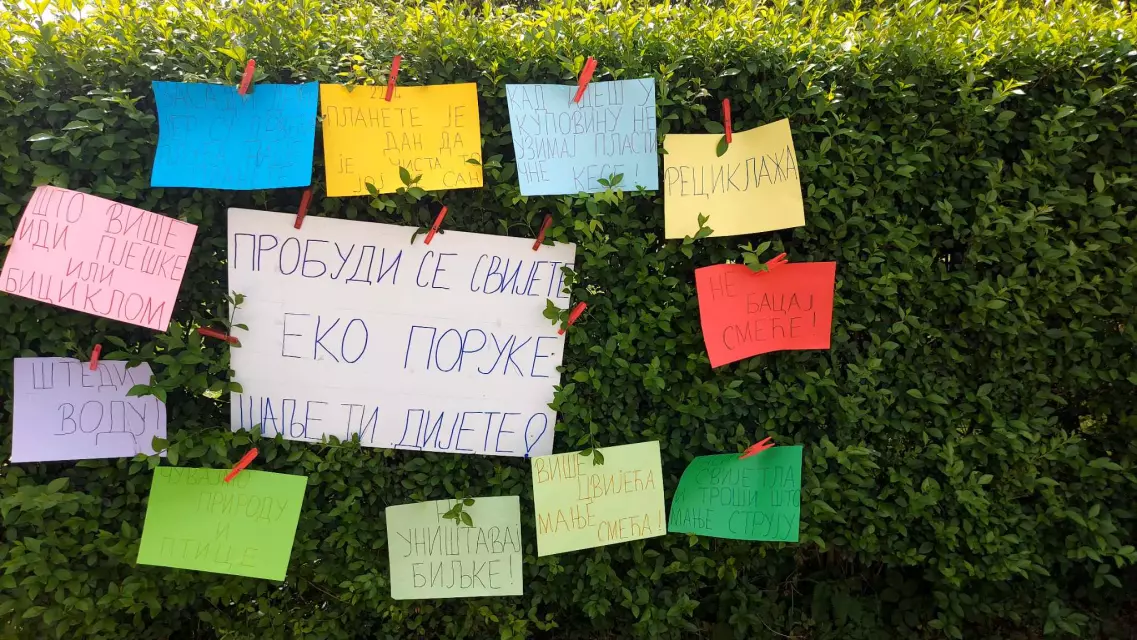 22.4.
ПЛАНЕТЕ ЈЕ
ДАН ДА
ЈЕ ЧИСТА ТО
ЈОЈ САН
КАД ИДЕШ У
КУПОВИНУ НЕ
УЗИМАЈ ПЛАСТИ
ЧНЕ КЕСЕ!
РЕЦИКЛАЖА
ШТО ВИШЕ
ИДИ ПЈЕШКЕ
ИЛИ
БИЦИКЛОМ
ПРОБУДИ СЕ СВИЈЕТЕ
ЕКО ПОРУКЕ
ШАЉЕ ТИ ДИЈЕТЕ!
НЕ
БАЦАЈ
СМЕЋЕ!
ШТЕДИ
ВОДУ!
ЧУВАЈМО
ПРИРОДУ
И
ПТИЦЕ
НЕ
УНИШТАВАЈ
БИЉКЕ!
ВИШЕ
ЦВИЈЕЋА
МАЊЕ
СМЕЋА!
СВИЈЕТЛА
И ТРОШИ ШТО
МАЊЕ СТРУЈУ